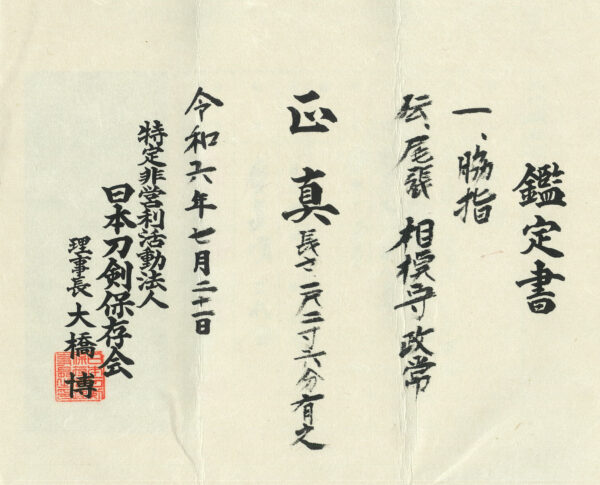 鑑定書
一、脇指
伝、尾張 相模守政常
正真 長さ、一尺二寸六分有之
令和六年七月二十一日
特定非営利活動法人
日本刀剣保存会
理事長 大橋博